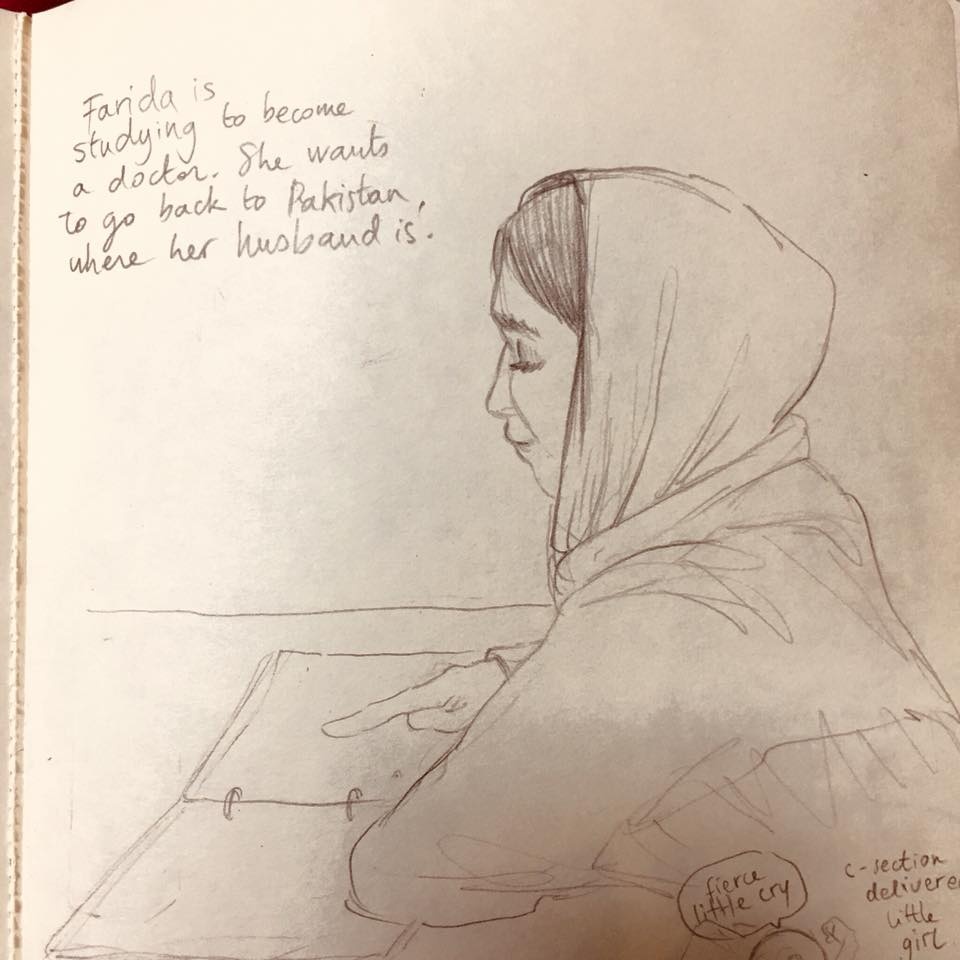 Farida is
studying to become
a doctor. She wants
to go back to Pakistan,
where her husband is.
fierce
little cry
c-section
delivere
little
girl